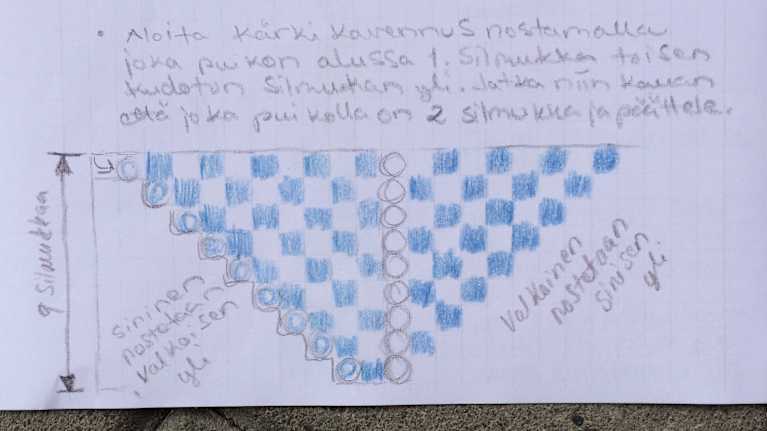 • Aloita kärkikavennus nostamalla
joka puikon alussa 1. silmukka toisen
kudotun silmukan yli. Jatka niin kauan
että joka puikolla on 2 silmukka ja päättele.
9 silmukkaa
sininen
nostetaan
valkoisen
yli
Valkoinen
nostetaan
sinisen
yli